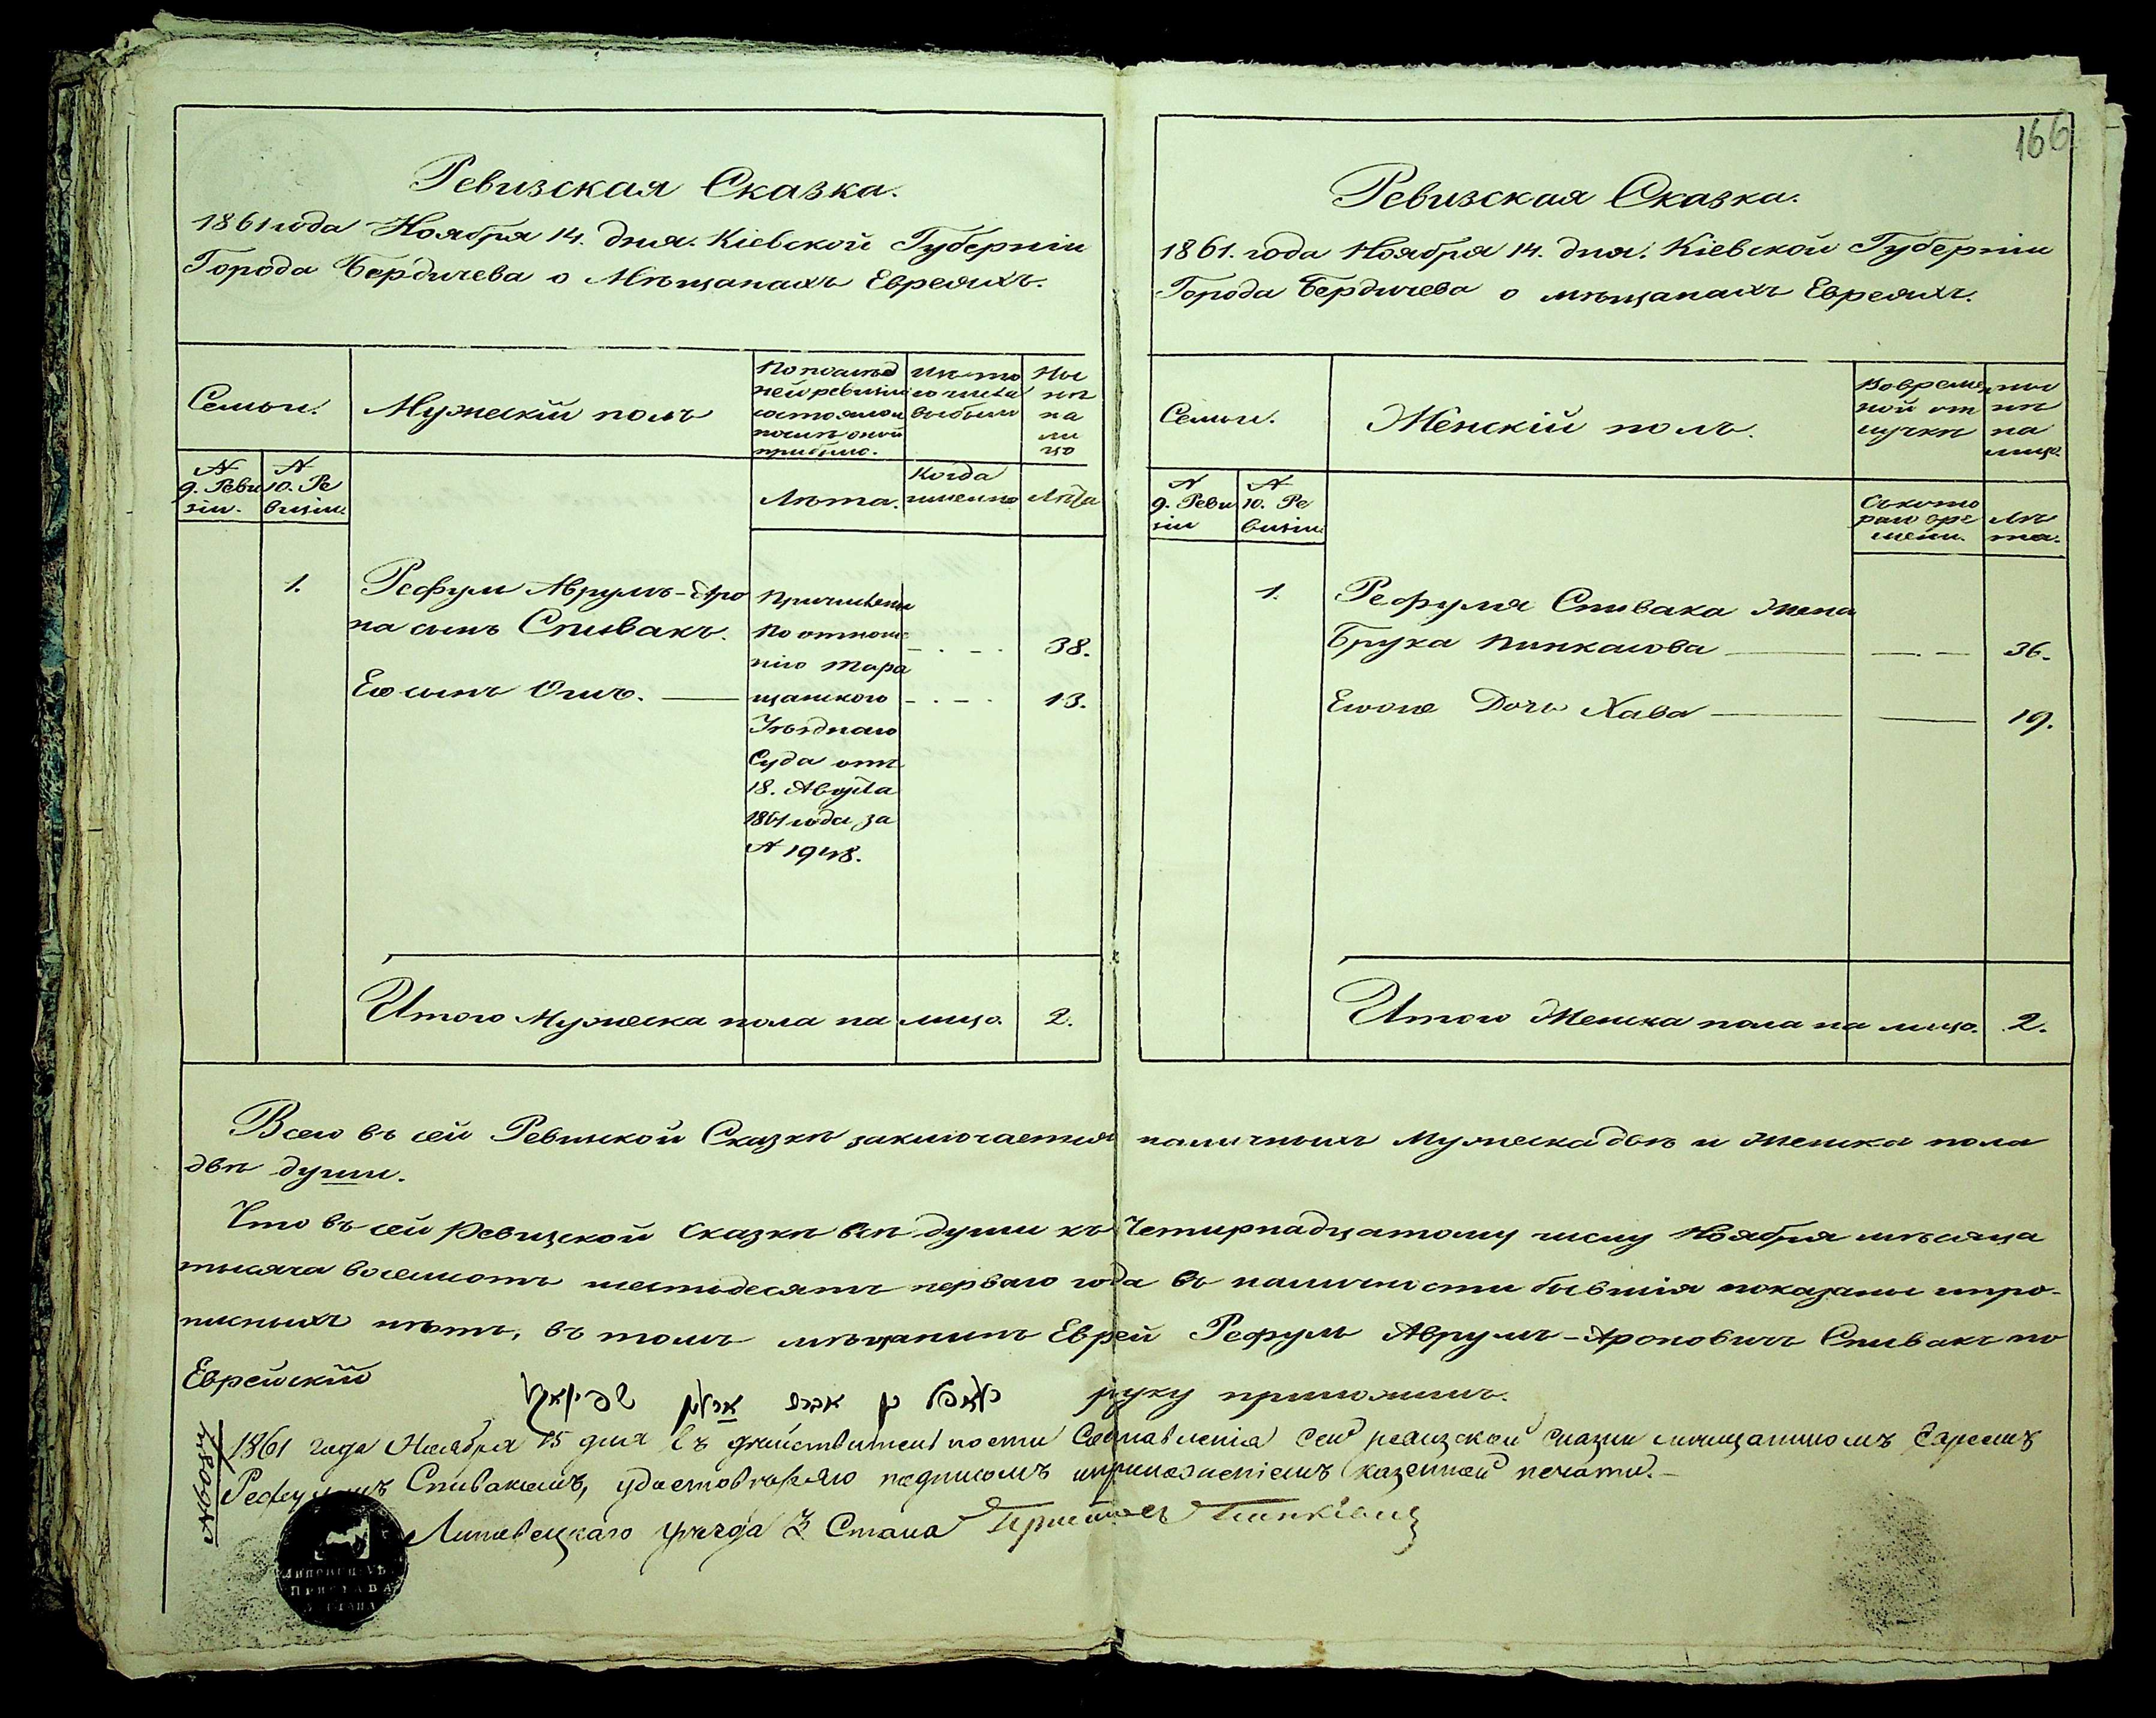 166
Ревизская Сказка.
1861 года Ноября 14. дня. Кіевской Губерніи
Города Бердичева о Мѣщанахъ Евреяхъ.
Семьи.
Мужескій полъ
По послѣд
ней ревизіи
состояло и
послѣ оной
прибыло.
Изъ то
го числа
выбыло
Ны
нѣ
на
ли
цо
№
9. Реви
зіи.
№
10. Ре
визіи.
Лѣта.
Когда
именно
Лѣта
1.
Рефул Аврумъ-Аро
на сынъ Спивакъ.
38.
Его сынъ Ошъ.
13.
Причислены
по отноше
нію Тара
щанского
Уѣзднаго
Суда отъ
18. Августа
1861 года за
№ 1948.
Итого Мужеска пола на лицо. 2.
Ревизская Сказка.
1861. года Ноября 14. дня. Кіевской Губерніи
Города Бердичева о мѣщанахъ Евреяхъ.
Семьи.
Женскій полъ.
Во времен
ной от
лучкѣ
ны
нѣ
на
лицо.
№
9. Реви
зіи
№
10. Ре
визіи.
Съ кото
раго вре
мени.
Лѣ
та.
1.
Рефуля Спивака жена
Бруха Пинкасова 36.
Егоже Дочь Хава 19.
Итого Женска пола на лицо. 2.
Всего въ сей Ревизской Сказкѣ заключается наличныхъ Мужеска двѣ и Женска пола
двѣ души.
Что въ сей Ревизской Сказкѣ всѣ души къ Четырнадцатому числу Ноября мѣсяца
тысяча восемсотъ шестьдесятъ перваго года въ наличности бывшія показаны и про-
писныхъ нѣтъ, въ томъ мѣщанинъ Еврей Рефулъ Аврумъ-Ароновичъ Спивакъ по
Еврейскій
רפאל בן אברם אהרן שפיוואק
руку приложилъ.
1861 года Ноября 15 дня въ дѣйствительности Составленія сей ревизской сказки мѣщаниномъ Евреемъ
Рефулемъ Спивакомъ, удостовѣряю подписомъ и приложеніемъ казенной печати.-
Липовецкаго уѣзда 3 Стана Приставъ
ЛИПОВЕЦ. УѢ.
ПРИСТАВА
3 СТАНА